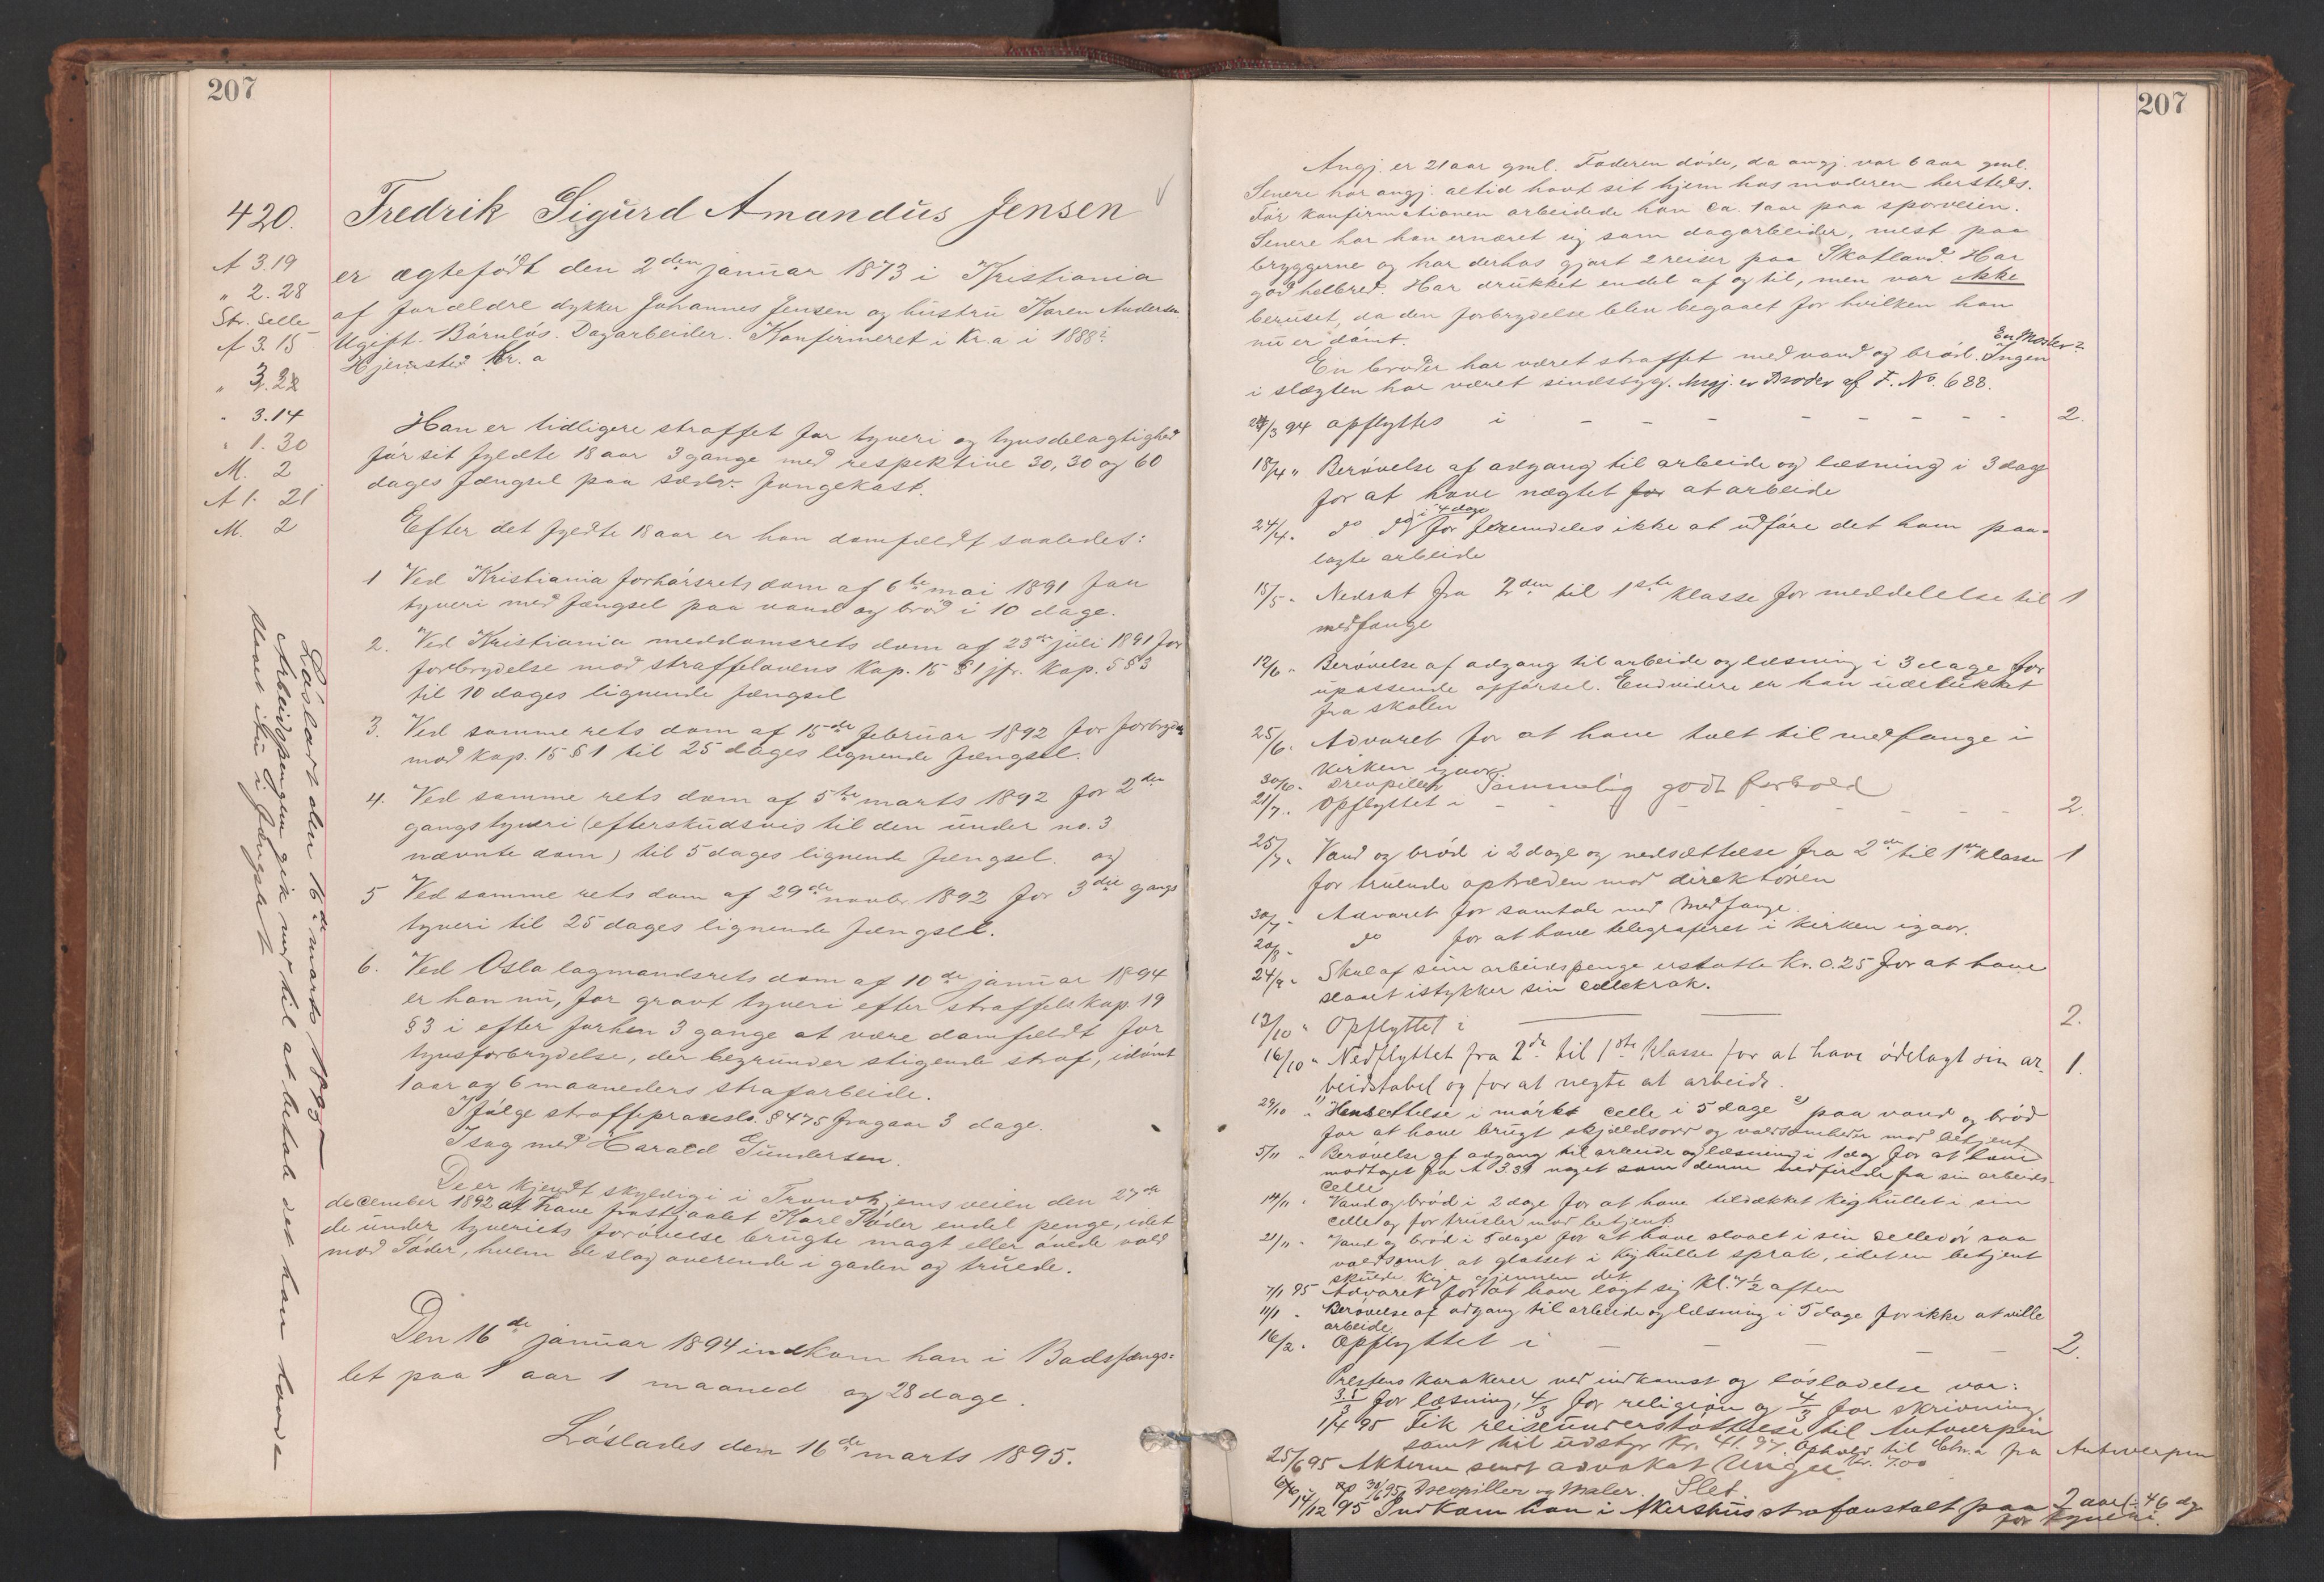 207
420.
A 3.19
" 2.28
Str. Celle
A 3.15
" 3.22
" 3.14
" 1.30
M. 2
A 1. 21
M. 2
Fredrik Sigurd Amandus Jensen
er ægtefødt den 2den januar 1873 i Kristiania
af forældre dykker Johannes Jensen og hustru Karen Andersen
Ugift. Barnløs. Dagarbeider. Konfirmeret i Kr.a i 1888.
Hjemsted Kr. a
Han er tidligere straffet for tyveri og tyvsdelagtighed
før sit fyldte 18 aar 3 gange med respektive 30, 30 og 60
dages fængsel paa sædv. fangekost.
Efter det fyldte 18 aar er han domfældt saaledes:
1 Ved Kristiania forhørsrets dom af 6te mai 1891 for
tyveri med fængsel paa vand og brød i 10 dage.
2. Ved Kristiania meddomsrets dom af 23de juli 1891 for
forbrydelse mod straffelovens Kap. 15 § 1 jfr. Kap. 5 § 3
til 10 dages lignende fængsel
3. Ved samme rets dom af 15de februar 1892 for forbrydelse
mod kap. 15 § 1 til 25 dages lignende fængsel.
4. Ved samme rets dom af 5te marts 1892 for 2den
gangs tyveri (efterskudsvis til den under no. 3
nævnte dom) til 5 dages lignende fængsel. og
5 Ved samme rets dom af 29de novbr. 1892 for 3die gangs
tyveri til 25 dages lignende fængsel.
6. Ved Oslo lagmandsrets dom af 10de januar 1894
er han nu, for grovt tyveri efter straffels kap. 19
§ 3 i efter forhen 3 gange at være domfældt for
tyvsforbrydelse, der begrunder stigende straf, idømt
1 aar og 6 maaneders strafarbeide.
Ifølge straffeproceslo. § 475 fragaar 3 dage.
I sag med Harald Gundersen.
De er kjendt skyldig i i Trondhjemsveien den 27de
december 1892 at have frastjaalet Karl Søder endel penge, idet
de under tyveriets forøvelse brugte magt eller øvede vold
mod Søder, hvem de slog overende i gaden og truede.
Den 16de januar 1894 indkom han i Bodsfængs-
let paa 1 aar 1 maaned og 28 dage.
Løslades den 16de marts 1895.
Løsladt den 16de marts 1895
Arbeidspengene gik med til at betale det han havde
øvet itu i fængslet
207
Angj. er 21 aar gml. Faderen døde, da angj. var 6 aar gml.
Senere har angj. altid havt sit hjem hos moderen hersteds.
Før konfirmationen arbeidede han ca. 1 aar paa sporveien.
Senere har han ernæret sig som dagarbeider, mest paa
bryggerne og har derhos gjort 2 reiser paa Skotland. Har
god helbred. Har drukket endel af og til, men var ikke
beruset, da den forbrydelse blev begaaet for hvilken han
nu er dømt.
En Moster?
En broder har været straffet med vand og brød. Ingen
i slægten har været sindssyg. Angj. er Broder af F. No. 688.
24/3 94 opflyttes i - - - - - - - - 2.
18/4 " Berøvelse af adgang til arbeide og læsning i 3 dage
for at have nægtet for at arbeide
24/4 " do do i 4 dage for fremdeles ikke at udføre det ham paa-
lagte arbeide
15/5 " Nedsat fra 2den til 1ste klasse for meddelelse til 1
medfange
12/6 " Berøvelse af adgang til arbeide og læsning i 3 dage for
upassende opførsel. Endvidere er han udelukket
fra skolen
25/6 " Advaret for at have talt til medfange i
kirken igaar
30/6 " Drevpiller Sammelig godt forhold
21/7 " Opflyttet i - - - - - - 2.
25/7 " Vand og brød i 2 dage og nedsættelse fra 2de til 1ste klasse 1
for truende optræden mod direktøren
30/7 " Advaret for samtale med Medfange.
20/8 " do for at have telegraferet i kirken igaar.
24/9 " Skal af sine arbeidspenge erstatte Kr. 0.25 for at have
slaaet istykker sin cellekrak.
13/10 " Opflyttet i 2.
16/10 " Nedflyttet fra 2de til 1ste klasse for at have ødelagt sin ar- 1.
beidstabel og for at negte at arbeide.
29/10 " Hensettelse i mørkt celle i 5 dage paa vand og brød
for at have brugt skjældsord og voldsomheder mod betjent
5/11 " Berøvelse af adgang til arbeide og læsning i 1 dag for at have
modtaget fra A 3.39 noget som denne nedfirede fra sin arbeids-
celle
14/11 " Vand og brød i 2 dage for at have tildækket kighullet i sin
celle og for trusler mod betjent
21/11 " Vand og brød i 5 dage for at have slaaet i sin celledør saa
voldsomt at glasset i kighullet sprak, idet en betjent
skulde kige gjennem det.
7/1 95 Advaret for at have lagt sig kl. 7 1/2 aften
11/1 " Berøvelse af adgang til arbeide og læsning i 5 dage for ikke at ville
arbeide
16/2 " Opflyttet i - - - - - 2.
Prestens karakerer ved indkomst og løsladelse var:
3.5/3 for læsning, 4/3 for religion og 4/3 for skrivning
1/4 95 Fik reiseunderstøttelse til Antverpen
samt til udstyr Kr. 41.97. Ophold til Chr.a fra Antwerpen
Kr. 7.00
25/6 95 Akterne sendt advokat Unger
30/6 95 Drevpiller og Maler. Slet.
14/12 95 Indkom han i Akershus strafanstalt paa 2 aar ÷ 46 dg
for tyveri.